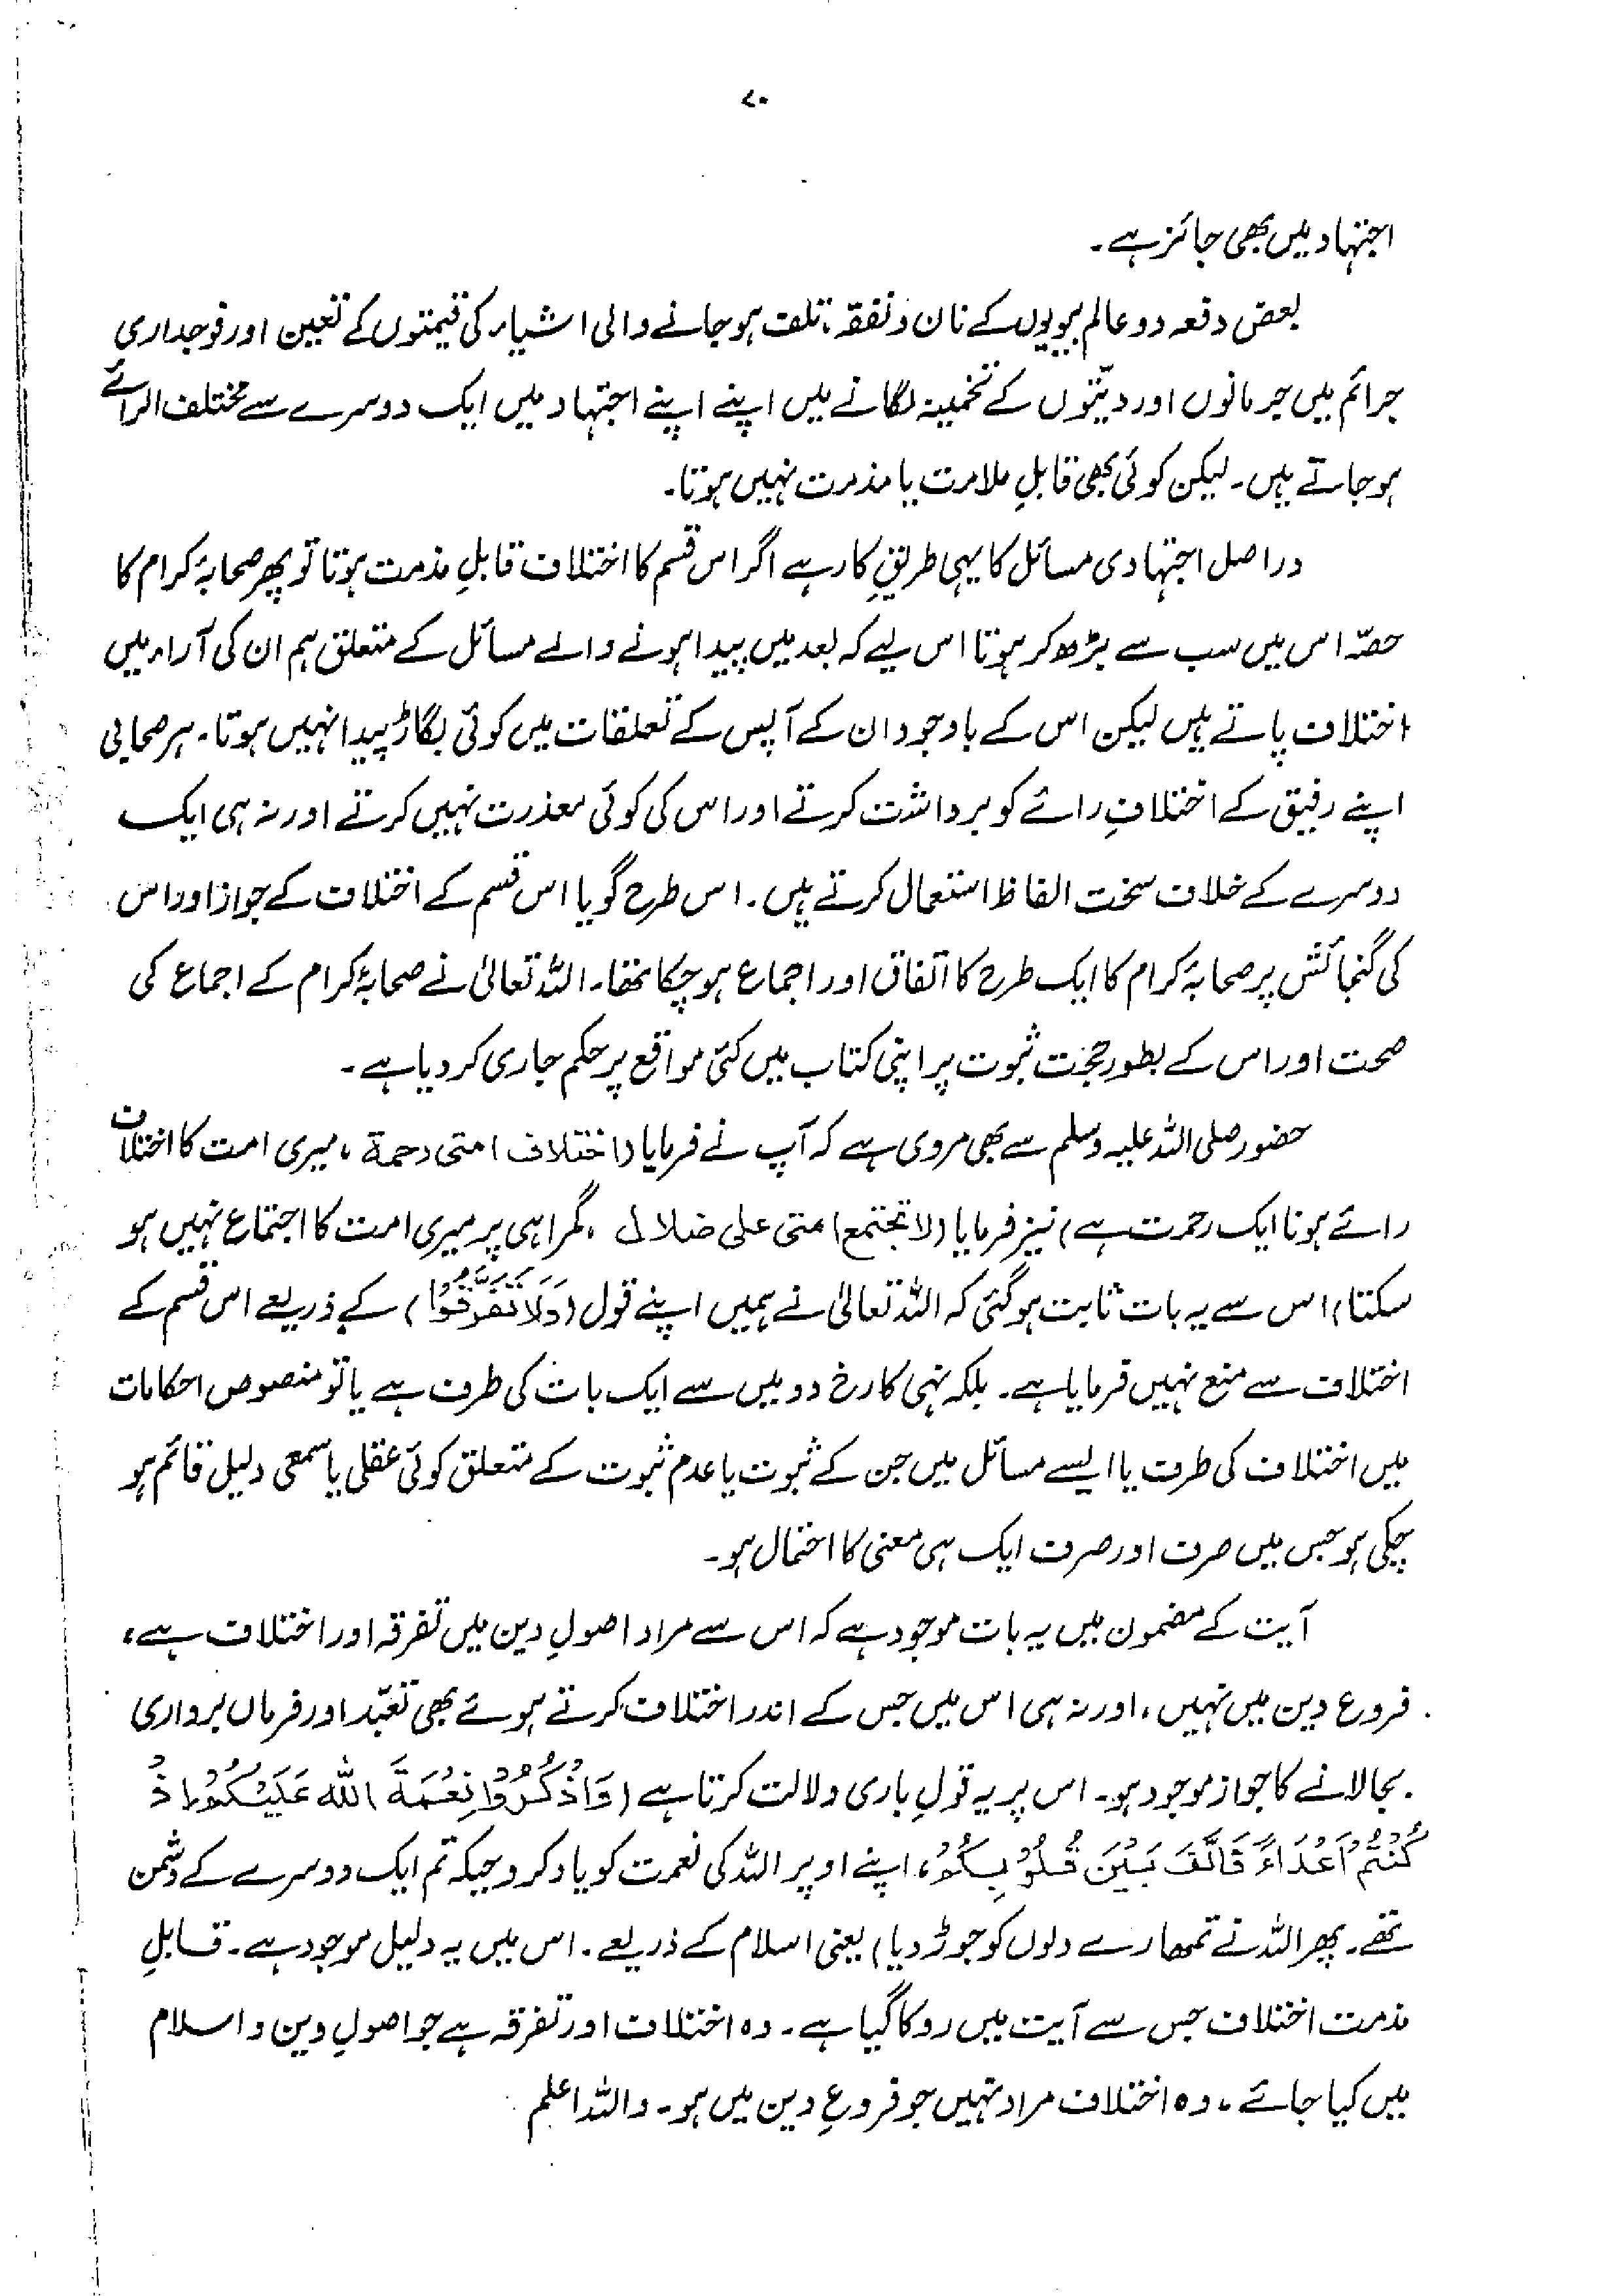 ۷۰
اجتہاد میں بھی جائز ہے۔
بعض دفعہ دو عالم بیویوں کے نان و نفقہ، تلف ہو جانے والی اشیاء کی قیمتوں کے تعین اور فوجداری
جرائم میں جرمانوں اور دیتوں کے تخمینہ لگانے میں اپنے اپنے اجتہاد میں ایک دوسرے سے مختلف الرائے
ہو جاتے ہیں۔ لیکن کوئی بھی قابلِ ملامت یا مذمت نہیں ہوتا۔
دراصل اجتہادی مسائل کا یہی طریقِ کار ہے اگر اس قسم کا اختلاف قابلِ مذمت ہوتا تو پھر صحابۂ کرام کا
حصّہ اس میں سب سے بڑھ کر ہوتا اس لیے کہ بعد میں پیدا ہونے والے مسائل کے متعلق ہم ان کی آراء میں
اختلاف پاتے ہیں لیکن اس کے باوجود ان کے آپس کے تعلقات میں کوئی بگاڑ پیدا نہیں ہوتا۔ ہر صحابی
اپنے رفیق کے اختلافِ رائے کو برداشت کرتے اور اس کی کوئی معذرت نہیں کرتے اور نہ ہی ایک
دوسرے کے خلاف سخت الفاظ استعمال کرتے ہیں۔ اس طرح گویا اس قسم کے اختلاف کے جواز اور اس
کی گنجائش پر صحابۂ کرام کا ایک طرح کا اتفاق اور اجماع ہو چکا تھا۔ اللہ تعالیٰ نے صحابۂ کرام کے اجماع کی
صحت اور اس کے بطور حجت ثبوت پر اپنی کتاب میں کئی مواقع پر حکم جاری کر دیا ہے۔
حضور صلی اللہ علیہ وسلم سے بھی مروی ہے کہ آپ نے فرمایا (اختلاف امتی رحمة، میری امت کا اختلاف
رائے ہونا ایک رحمت ہے) نیز فرمایا (لا تجتمع امتی علی ضلال، گمراہی پر میری امت کا اجتماع نہیں ہو
سکتا) اس سے یہ بات ثابت ہو گئی کہ اللہ تعالیٰ نے ہمیں اپنے قول (وَلَا تَفَرَّقُوْا) کے ذریعے اس قسم کے
اختلاف سے منع نہیں فرمایا ہے۔ بلکہ نہی کا رخ دو میں سے ایک بات کی طرف ہے یا تو منصوص احکامات
میں اختلاف کی طرف یا ایسے مسائل میں جن کے ثبوت یا عدم ثبوت کے متعلق کوئی عقلی یا سمعی دلیل قائم ہو
چکی ہو جس میں صرف اور صرف ایک ہی معنی کا احتمال ہو۔
آیت کے مضمون میں یہ بات موجود ہے کہ اس سے مراد اصولِ دین میں تفرقہ اور اختلاف ہے،
فروع دین میں نہیں، اور نہ ہی اس میں جس کے اندر اختلاف کرتے ہوئے بھی تعبّد اور فرماں برداری
بجا لانے کا جواز موجود ہو۔ اس پر یہ قولِ باری دلالت کرتا ہے (وَاذْكُرُوْا نِعْمَةَ اللّٰهِ عَلَيْكُمْ اِذْ
كُنْتُمْ اَعْدَاءً فَاَلَّفَ بَيْنَ قُلُوْبِكُمْ، اپنے اوپر اللہ کی نعمت کو یاد کرو جبکہ تم ایک دوسرے کے دشمن
تھے۔ پھر اللہ نے تمھارے دلوں کو جوڑ دیا) یعنی اسلام کے ذریعے۔ اس میں یہ دلیل موجود ہے۔ قابلِ
مذمت اختلاف جس سے آیت میں روکا گیا ہے۔ وہ اختلاف اور تفرقہ ہے جو اصولِ دین و اسلام
میں کیا جائے، وہ اختلاف مراد نہیں جو فروعِ دین میں ہو۔ واللہ اعلم